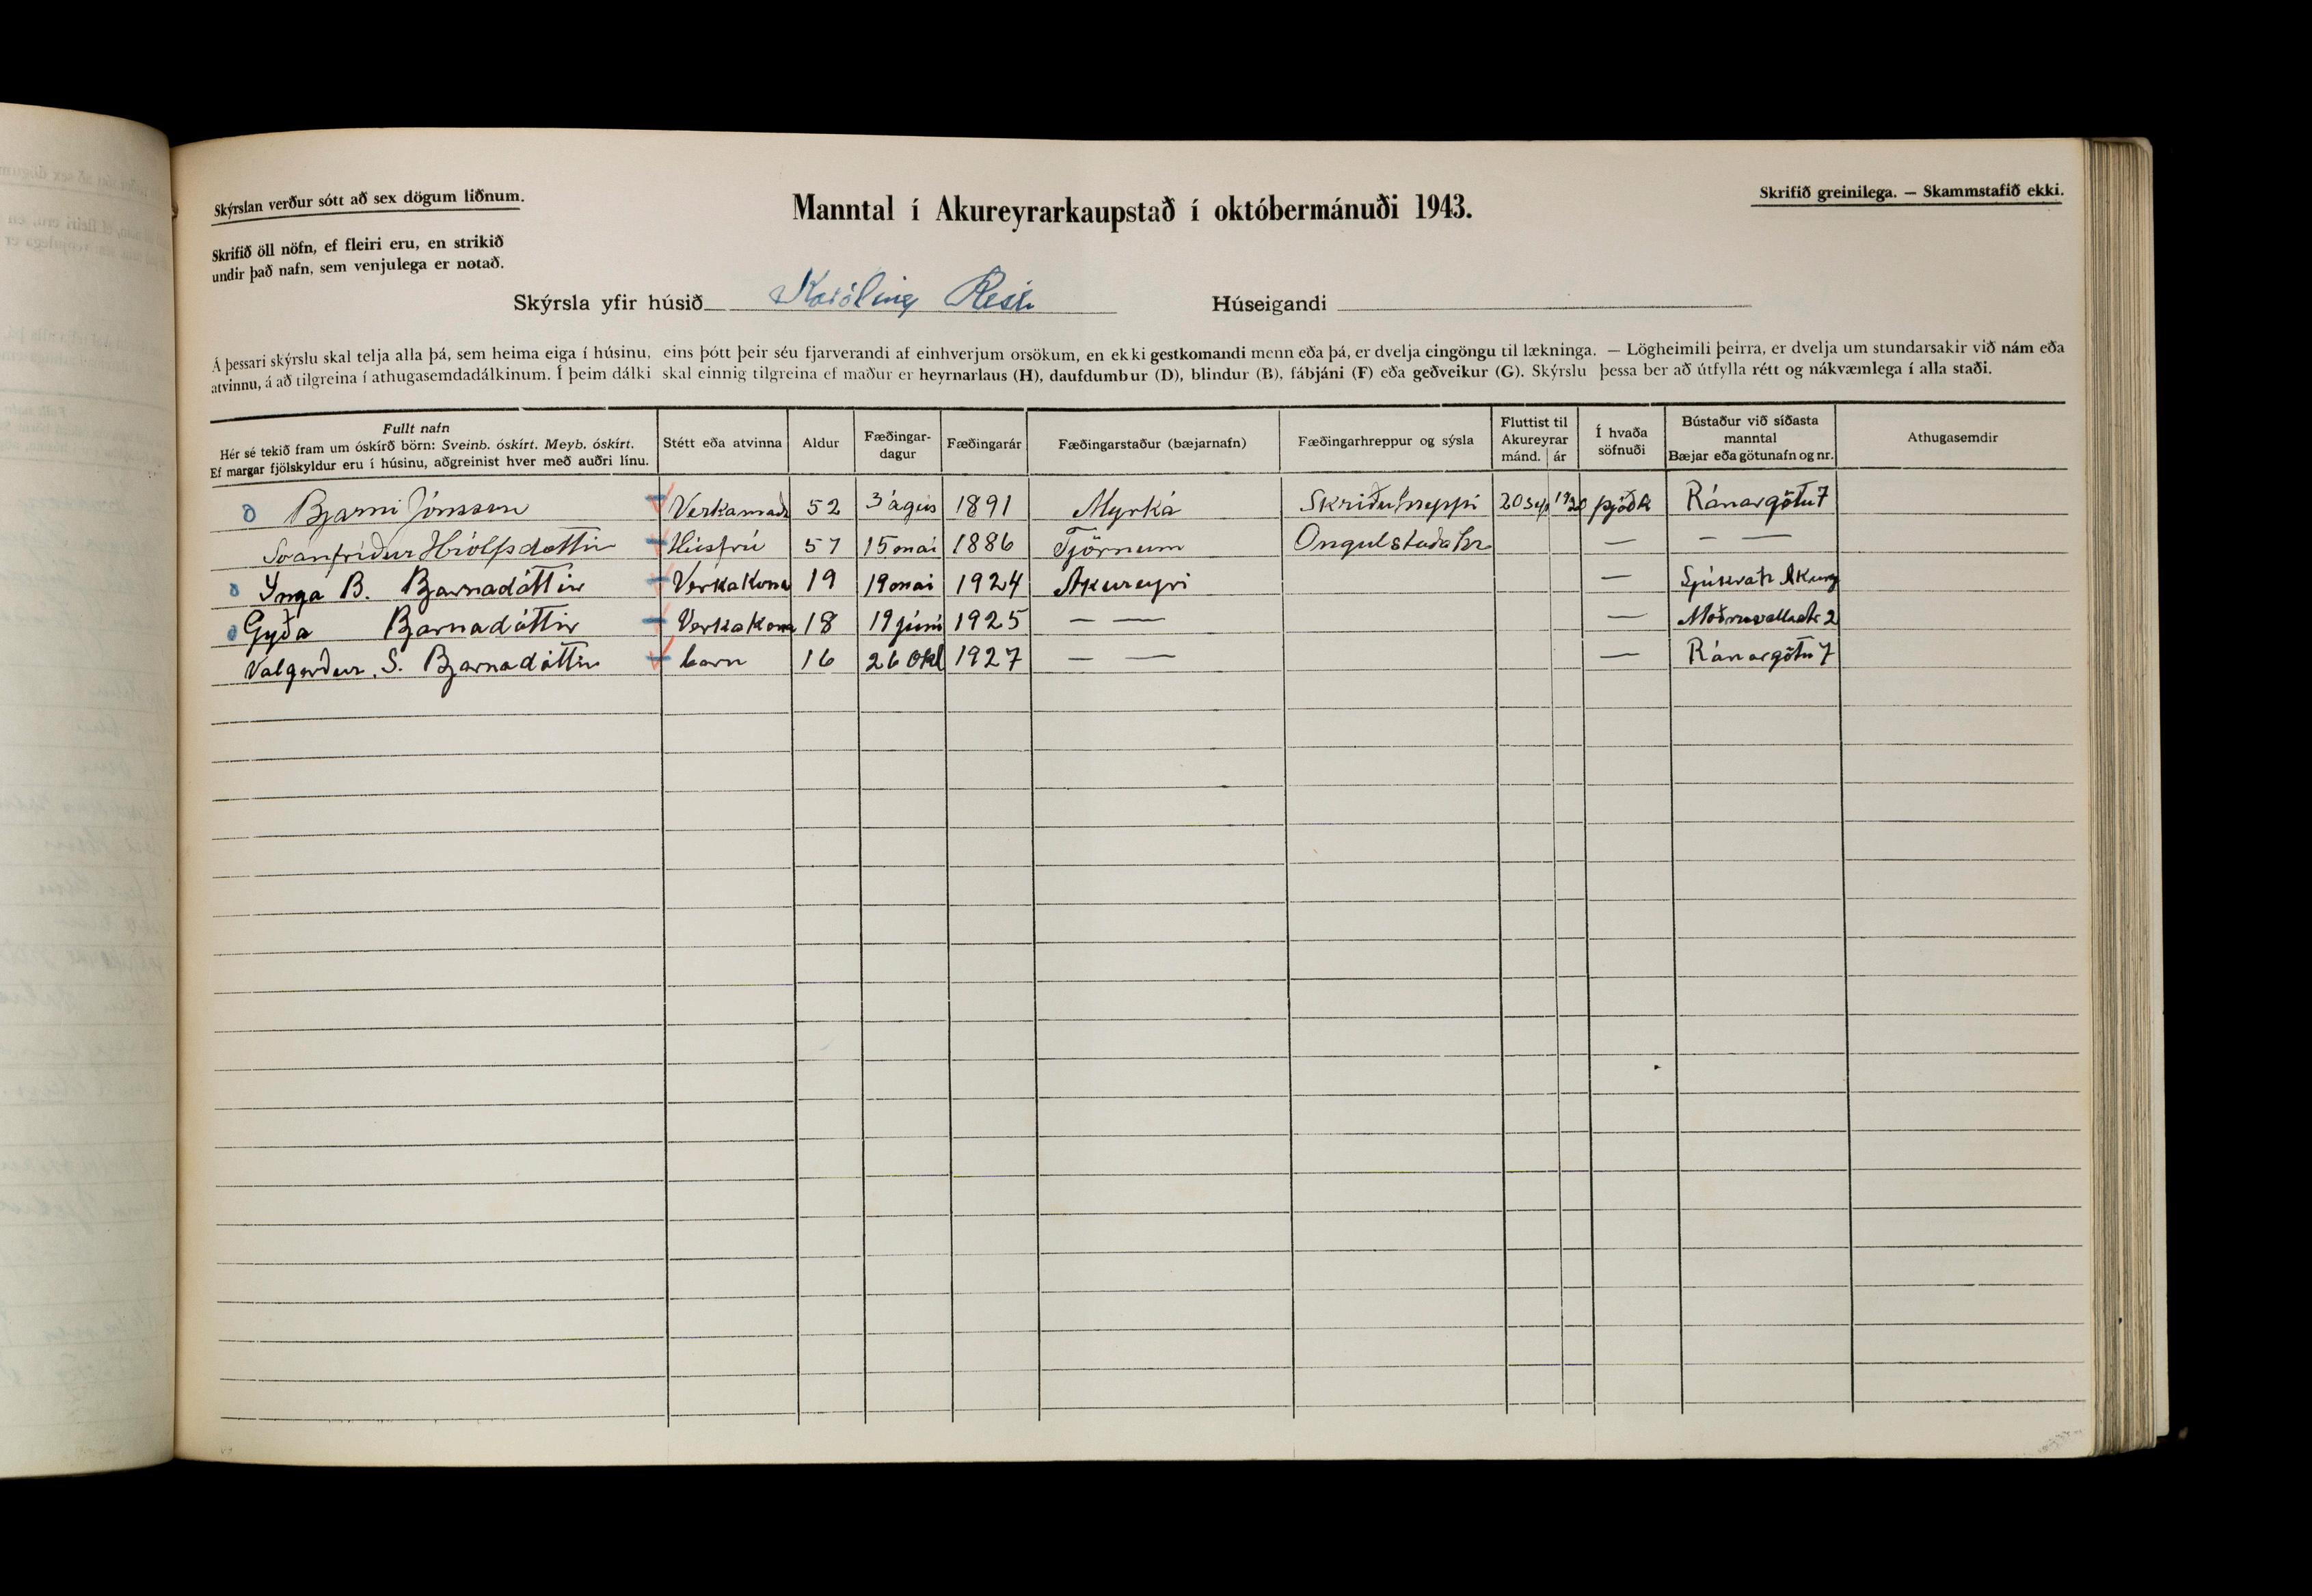 Skýrslan verður sótt að sex dögum liðnum.
Manntal í Akureyrarkaupstað í októbermánuði 1943.
Skrifið greinilega. — Skammstafið ekki.
Skrifið öll nöfn, ef fleiri eru, en strikið
undir það nafn, sem venjulega er notað.
Skýrsla yfir húsið Karólína Rest Húseigandi
Á þessari skýrslu skal telja alla þá, sem heima eiga í húsinu, eins þótt þeir séu fjarverandi af einhverjum orsökum, en ekki gestkomandi menn eða þá, er dvelja eingöngu til lækninga. — Lögheimili þeirra, er dvelja um stundarsakir við nám eða
atvinnu, á að tilgreina í athugasemdadálkinum. Í þeim dálki skal einnig tilgreina ef maður er heyrnarlaus (H), daufdumbur (D), blindur (B), fábjáni (F) eða geðveikur (G). Skýrslu þessa ber að útfylla rétt og nákvæmlega í alla staði.
Fullt nafn
Hér sé tekið fram um óskírð börn: Sveinb. óskírt. Meyb. óskírt.
Ef margar fjölskyldur eru í húsinu, aðgreinist hver með auðri línu.
Stétt eða atvinna
Aldur
Fæðingar-
dagur
Fæðingarár
Fæðingarstaður (bæjarnafn)
Fæðingarhreppur og sýsla
Fluttist til
Akureyrar
mánd. ár
Í hvaða
söfnuði
Bústaður við síðasta
manntal
Bæjar eða götunafn og nr.
Athugasemdir
Bjarni Jónsson Verkamaðr 52 3 ágús 1891 Myrká Skriðuhreppi 20 sep 1920 þjóðk Ránargötu 7
Svanfríður Hrólfsdóttir Húsfrú 57 15 maí 1886 Tjörnum Ongulstaða hr — — —
Ynga B. Bjarnadóttir Verkakona 19 19 maí 1924 Akureyri — Sjúkrah Akurey
Gyða Bjarnadóttir Verkakona 18 19 júní 1925 — — — Möðruvallastr 2
Valgerður S. Bjarnadóttir barn 16 26 okt 1927 — — — Ránargötu 7